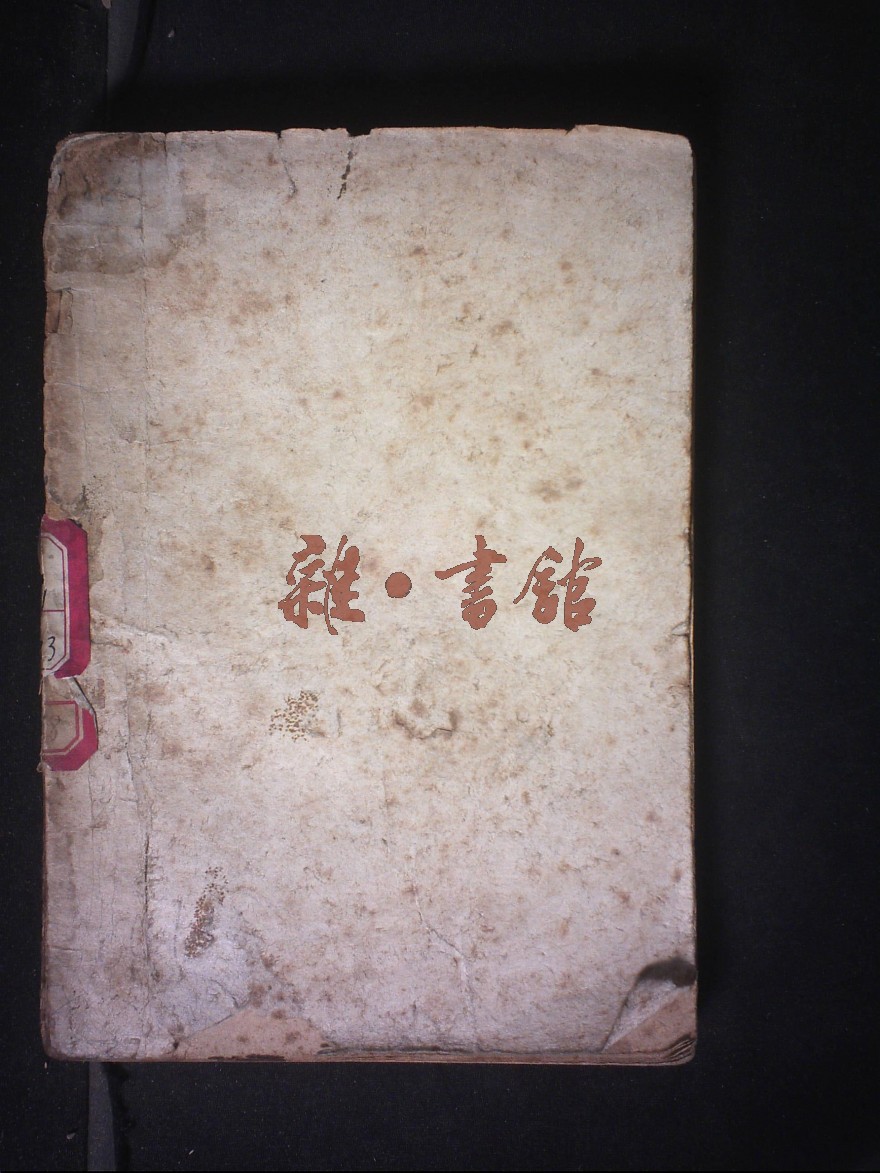 雜·書館
3